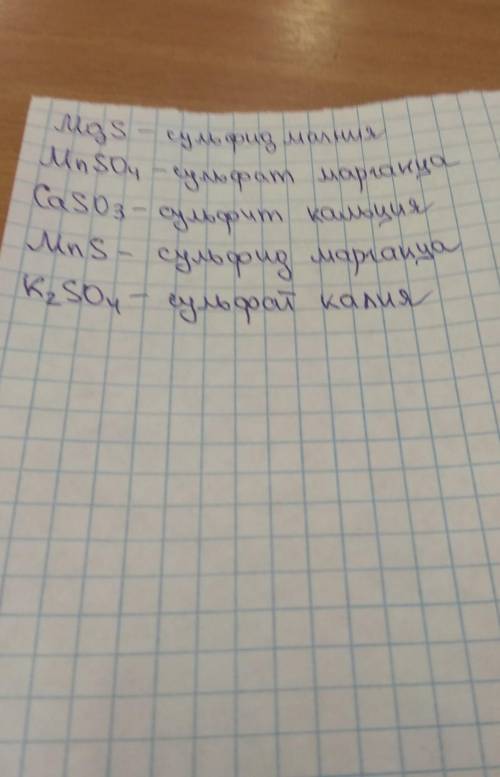 MgS - сульфид магния
MnSO₄ - сульфат марганца
CaSO₃ - сульфит кальция
MnS - сульфид марганца
K₂SO₄ - сульфат калия